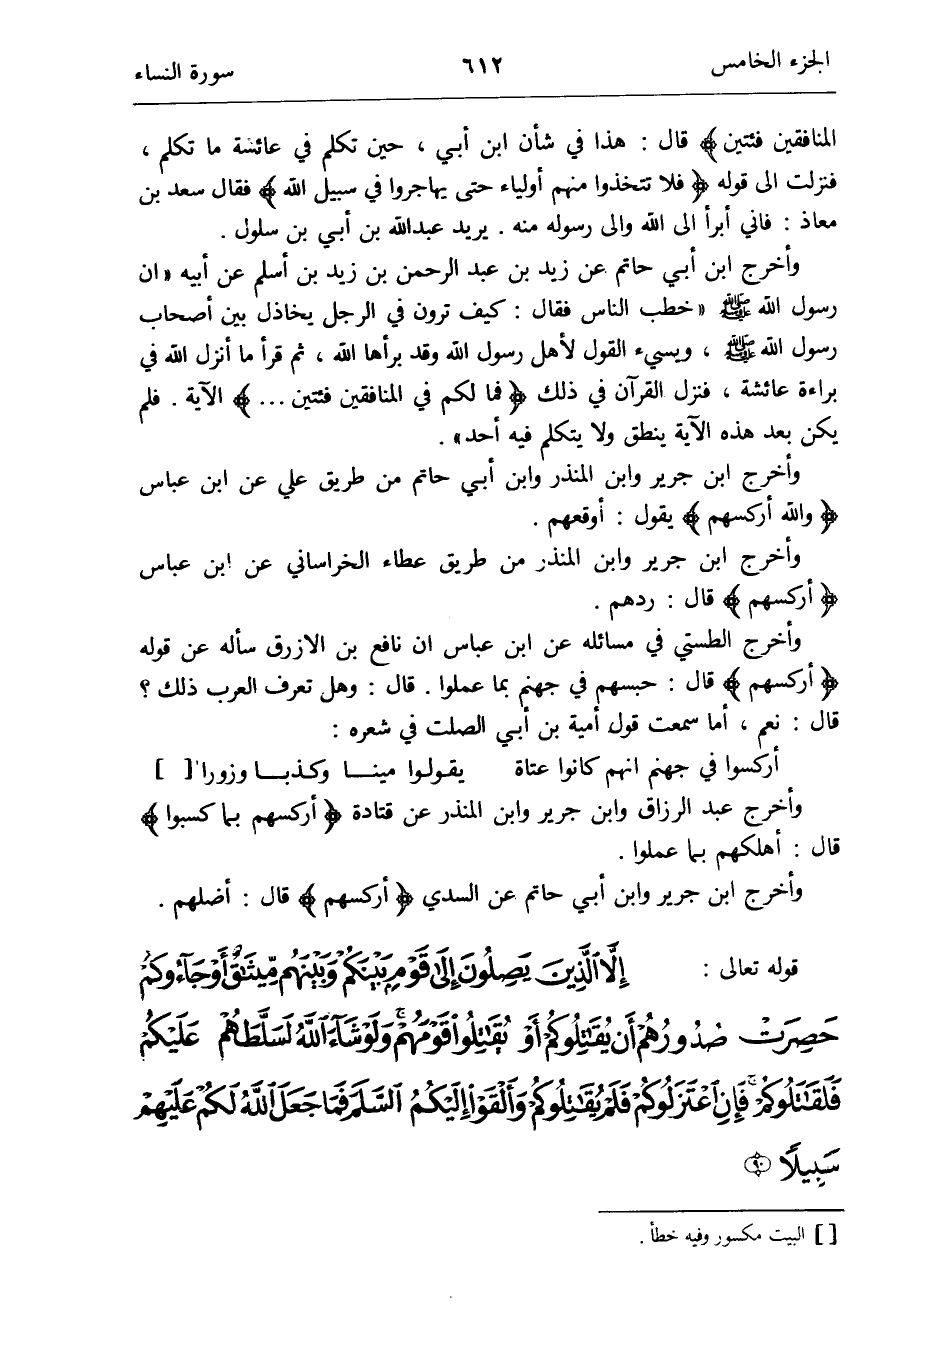 الجزء الخامس ٦١٢ سورة النساء
المنافقين فئتين ﴾ قال : هذا في شأن ابن أبي ، حين تكلم في عائشة ما تكلم ،
فنزلت الى قوله ﴿ فلا تتخذوا منهم أولياء حتى يهاجروا في سبيل الله ﴾ فقال سعد بن
معاذ : فاني أبرأ الى الله والى رسوله منه . يريد عبدالله بن أبي بن سلول .
وأخرج ابن أبي حاتم عن زيد بن عبد الرحمن بن زيد بن أسلم عن أبيه « ان
رسول الله ﷺ « خطب الناس فقال : كيف ترون في الرجل يخاذل بين أصحاب
رسول الله ﷺ ، ويسيء القول لأهل رسول الله وقد برأها الله ، ثم قرأ ما أنزل الله في
براءة عائشة ، فنزل القرآن في ذلك ﴿ فما لكم في المنافقين فئتين ... ﴾ الآية . فلم
يكن بعد هذه الآية ينطق ولا يتكلم فيه أحد» .
وأخرج ابن جرير وابن المنذر وابن أبي حاتم من طريق علي عن ابن عباس
﴿ والله أركسهم ﴾ يقول : أوقعهم .
وأخرج ابن جرير وابن المنذر من طريق عطاء الخراساني عن ابن عباس
﴿ أركسهم ﴾ قال : ردهم .
وأخرج الطستي في مسائله عن ابن عباس ان نافع بن الازرق سأله عن قوله
﴿ أركسهم ﴾ قال : حبسهم في جهنم بما عملوا . قال : وهل تعرف العرب ذلك ؟
قال : نعم ، أما سمعت قول أمية بن أبي الصلت في شعره :
أركسوا في جهنم انهم كانوا عتاة يقولوا مينا وكذبا وزورا [ ]
وأخرج عبد الرزاق وابن جرير وابن المنذر عن قتادة ﴿ أركسهم بما كسبوا ﴾
قال : أهلكهم بما عملوا .
وأخرج ابن جرير وابن أبي حاتم عن السدي ﴿ أركسهم ﴾ قال : أضلهم .
قوله تعالى : إِلَّا ٱلَّذِينَ يَصِلُونَ إِلَىٰ قَوْمٍۭ بَيْنَكُمْ وَبَيْنَهُم مِّيثَٰقٌ أَوْ جَآءُوكُمْ
حَصِرَتْ صُدُورُهُمْ أَن يُقَٰتِلُوكُمْ أَوْ يُقَٰتِلُوا۟ قَوْمَهُمْ ۚ وَلَوْ شَآءَ ٱللَّهُ لَسَلَّطَهُمْ عَلَيْكُمْ
فَلَقَٰتَلُوكُمْ ۚ فَإِنِ ٱعْتَزَلُوكُمْ فَلَمْ يُقَٰتِلُوكُمْ وَأَلْقَوْا۟ إِلَيْكُمُ ٱلسَّلَمَ فَمَا جَعَلَ ٱللَّهُ لَكُمْ عَلَيْهِمْ
سَبِيلًا ٩٠
[ ] البيت مكسور وفيه خطأ .